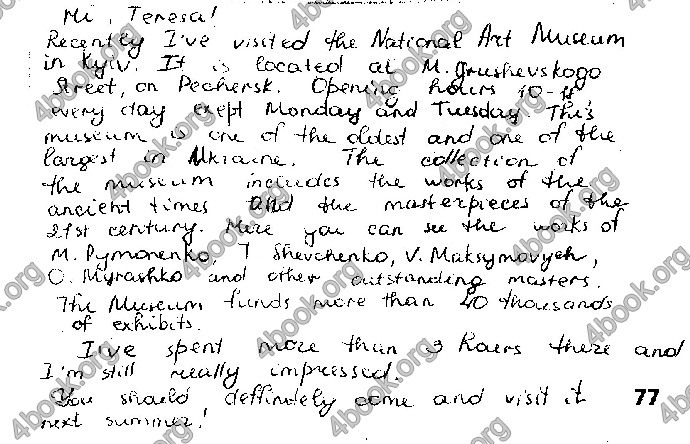 Hi, Teresa!
Recently I've visited the National Art Museum
in Kyiv. It is located at M. Grushevskogo
Street, on Pechersk. Opening hours 10-18
every day exept Monday and Tuesday. This
museum is one of the oldest and one of the
largest in Ukraine. The collection of
the museum includes the works of the
ancient times and the masterpieces of the
21st century. Here you can see the works of
M. Pymonenko, T Shevchenko, V. Maksymovych,
O. Myrashko and other outstanding masters.
The Museum funds more than 40 thousands
of exhibits.
I've spent more than 3 hours there and
I'm still really impressed.
You should deffinitely come and visit it 77
next summer!
4book.org